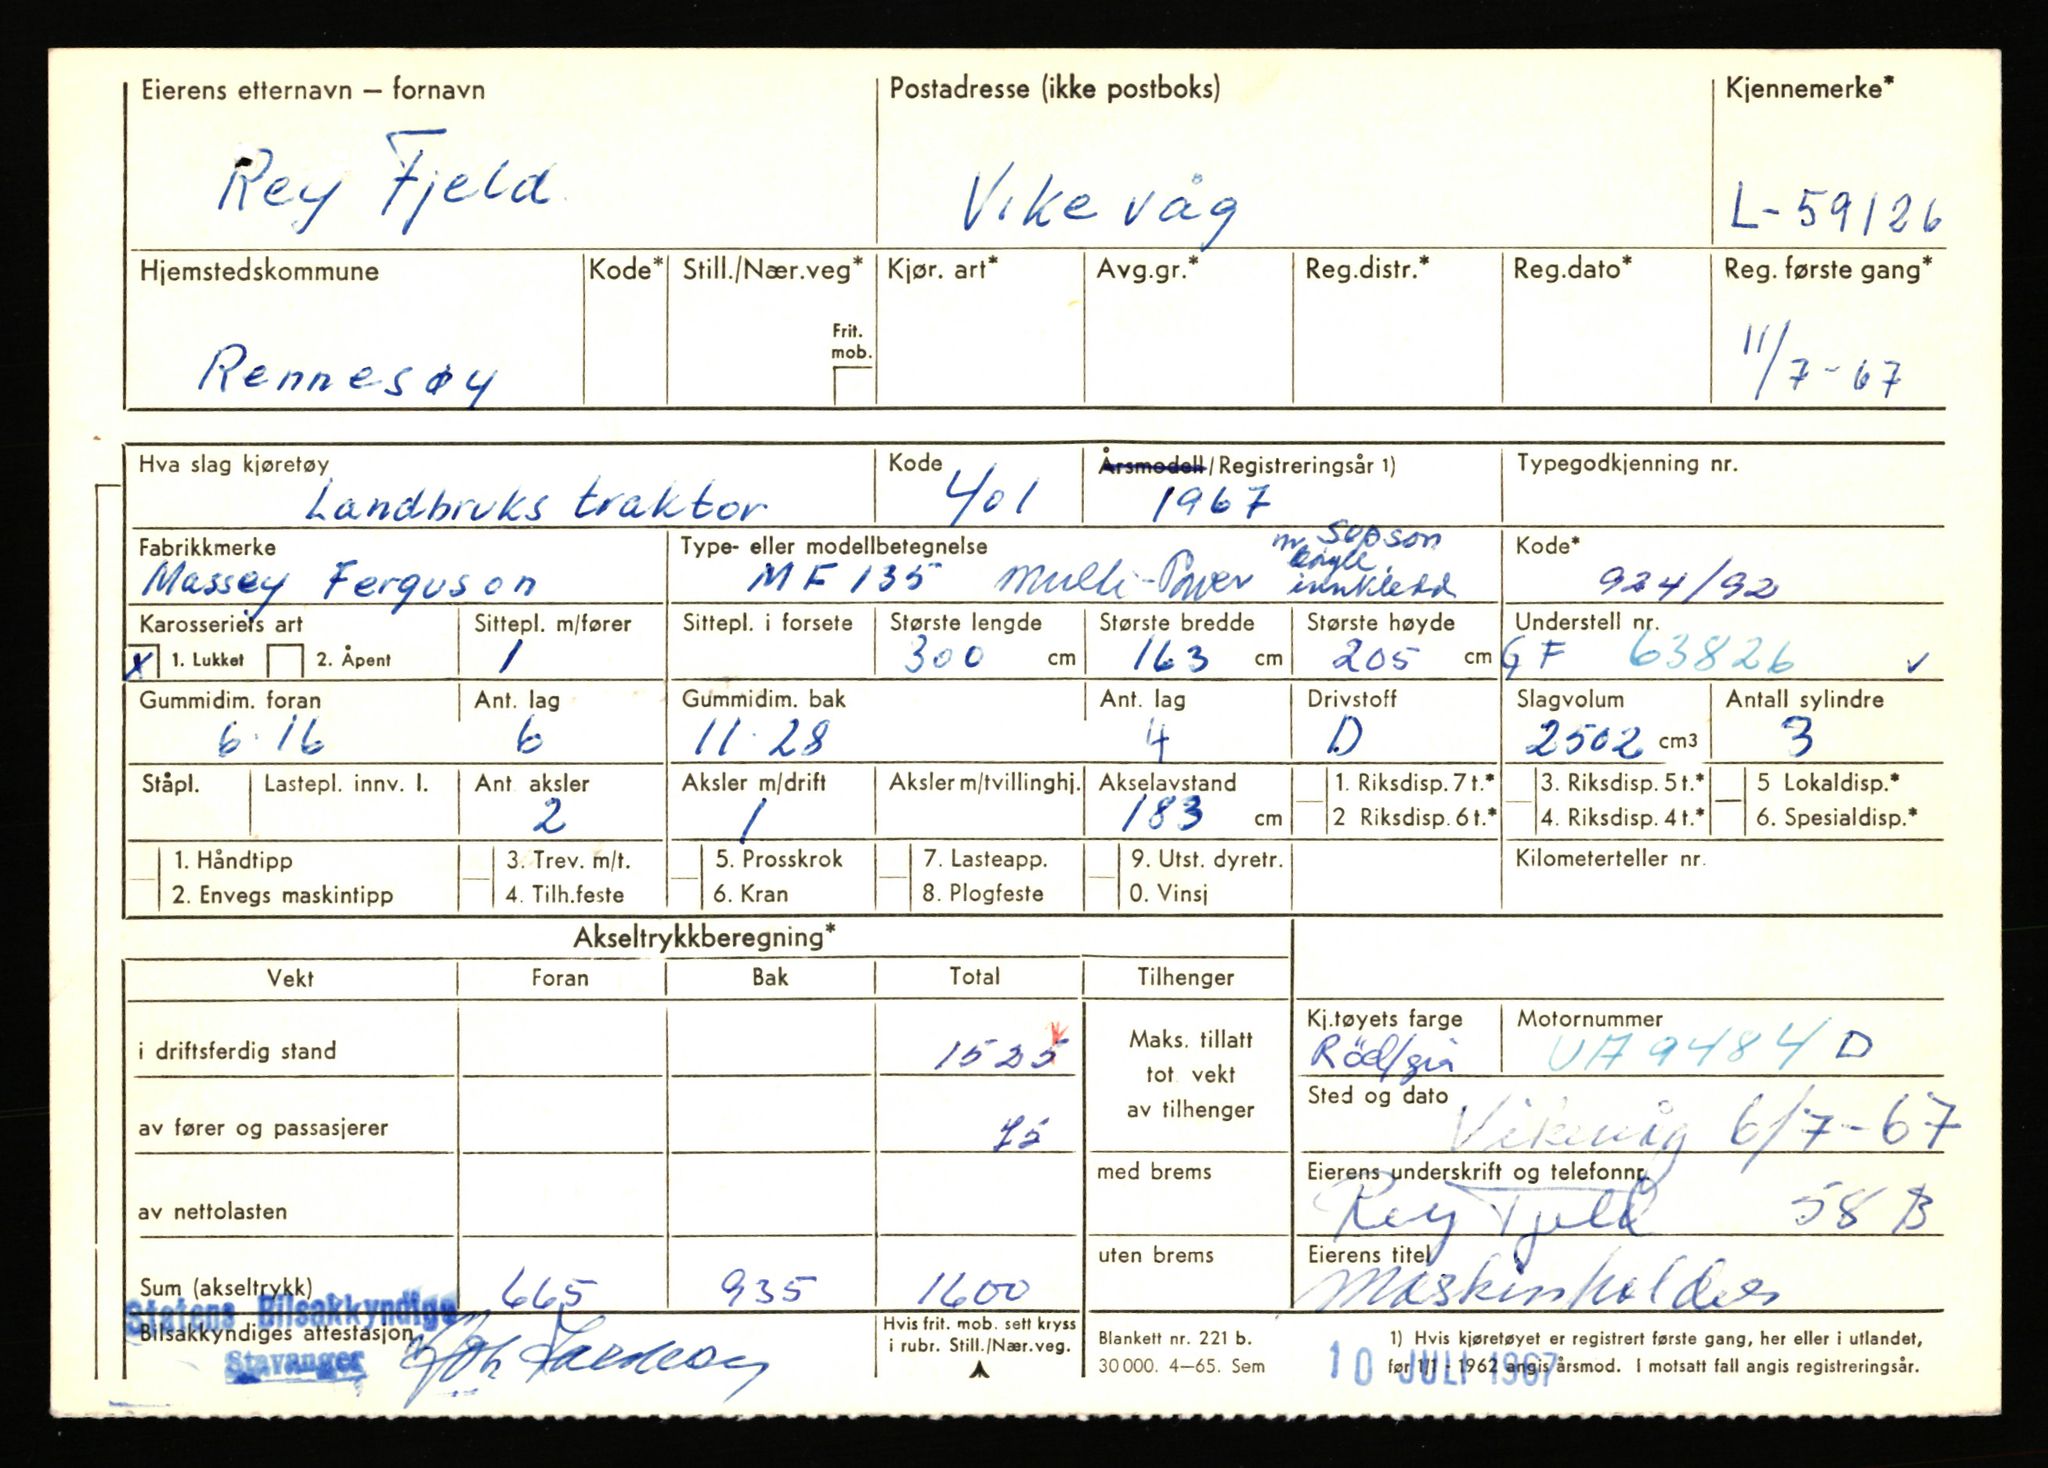 Eierens etternavn — fornavn Postadresse (ikke postboks) Kjennemerke*
Rey Fjeld Vikevåg L-59126
Hjemstedskommune Kode* Still./Nær.veg* Kjør. art* Avg.gr.* Reg.distr.* Reg.dato* Reg. første gang*
Frit. mob.
Rennesøy 11/7-67
Hva slag kjøretøy Kode Årsmodell/Registreringsår 1) Typegodkjenning nr.
Landbruks traktor 401 1967
Fabrikkmerke Type- eller modellbetegnelse Kode*
Massey Ferguson MF 135 Multi-Power m/ bøyle innkledd 924/92
Karosseriets art Sittepl. m/fører Sittepl. i forsete Største lengde Største bredde Største høyde Understell nr.
X 1. Lukket 2. Åpent 1 300 cm 163 cm 205 cm GF 63826 ✓
Gummidim. foran Ant. lag Gummidim. bak Ant. lag Drivstoff Slagvolum Antall sylindre
6·16 6 11·28 4 D 2502 cm3 3
Ståpl. Lastepl. innv. l. Ant aksler Aksler m/drift Aksler m/tvillinghj. Akselavstand 1. Riksdisp. 7 t.* 3. Riksdisp. 5 t.* 5 Lokaldisp.*
2 1 183 cm 2 Riksdisp. 6 t.* 4. Riksdisp. 4 t.* 6. Spesialdisp.*
1. Håndtipp 3. Trev. m/t. 5. Prosskrok 7. Lasteapp. 9. Utst. dyretr. Kilometerteller nr.
2. Envegs maskintipp 4. Tilh.feste 6. Kran 8. Plogfeste 0. Vinsj
Akseltrykkberegning*
Vekt Foran Bak Total Tilhenger
Kj.tøyets farge Motornummer
i driftsferdig stand 1525 Maks. tillatt Rød/grå UA 9484 D
tot vekt
Sted og dato
av fører og passasjerer 75 av tilhenger Vikevåg 6/7-67
med brems Eierens underskrift og telefonnr.
av nettolasten Rey Fjeld 58 B
uten brems Eierens titel
Sum (akseltrykk) 665 935 1600 Maskinholder
Statens Bilsakkyndige
Bilsakkyndiges attestasjon
Stavanger
Hvis frit. mob. sett kryss
i rubr. Still./Nær.veg.
Blankett nr. 221 b.
30 000. 4—65. Sem
1) Hvis kjøretøyet er registrert første gang, her eller i utlandet,
før 1/1 - 1962 angis årsmod. I motsatt fall angis registreringsår.
10 JULI 1967